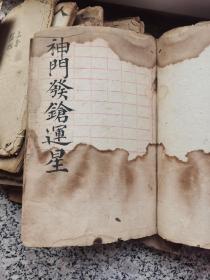 神門發鎗運星